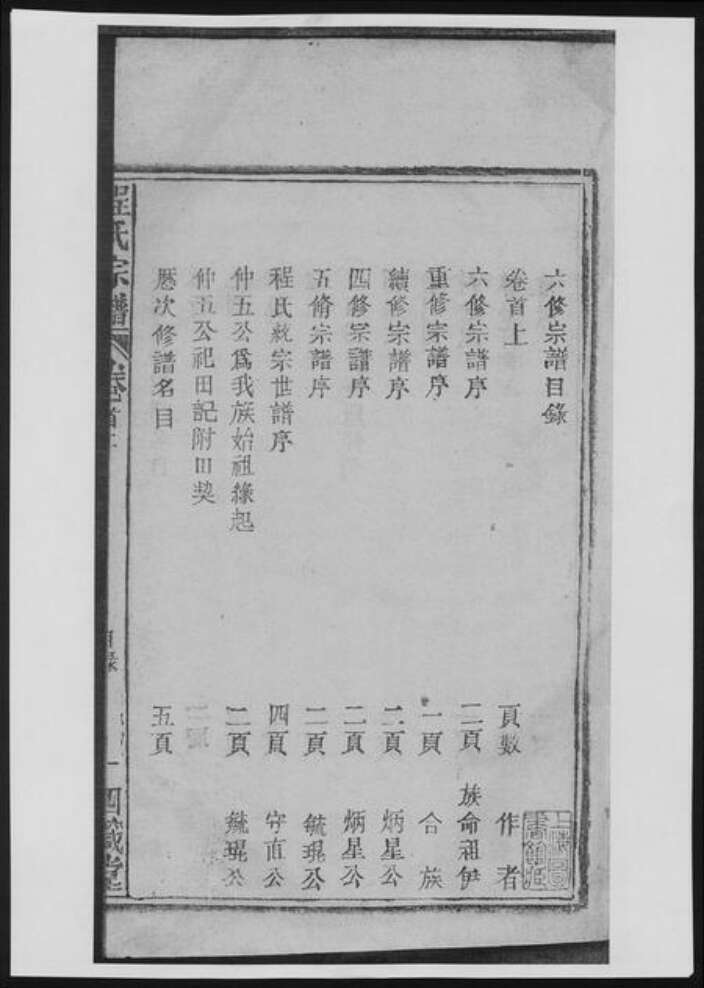 六修宗譜目錄
卷首上 頁數 作者
六修宗譜序 二頁 族命祖伊
重修宗譜序 一頁 合族
續修宗譜序 二頁 炳星公
四修宗譜序 二頁 炳星公
五脩宗譜序 二頁 毓琨公
程氏統宗世譜序 四頁 守直公
仲五公爲我族始祖緣起 二頁 毓琨公
仲五公祀田記附田契 二頁
歷次修譜名目 五頁
程氏宗譜 卷首上 目錄 一